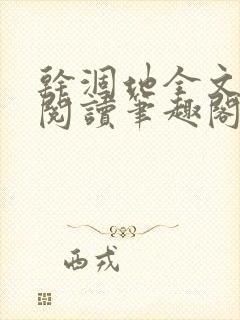 幹涸地全文
閱讀筆趣閣
西戎